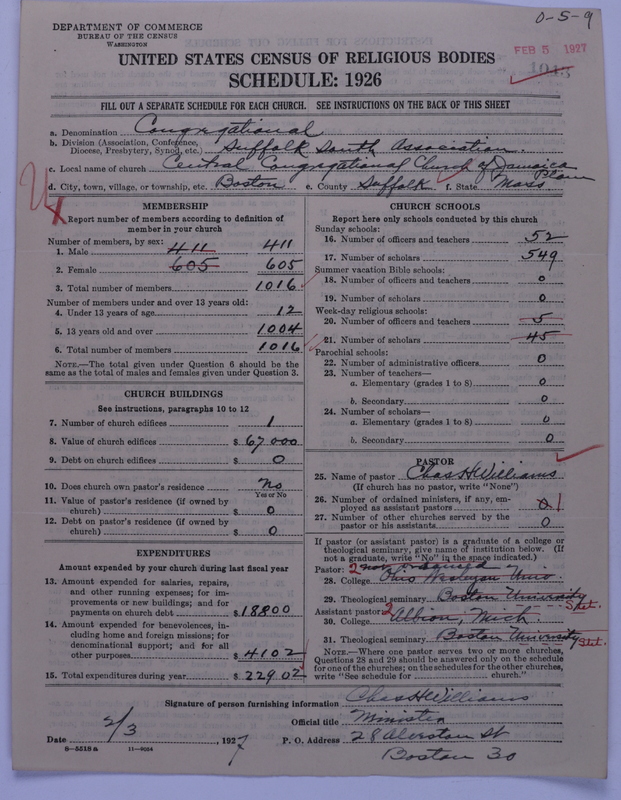 DEPARTMENT OF COMMERCE
BUREAU OF THE CENSUS
WASHINGTON
0-5-9
FEB 5 1927
UNITED STATES CENSUS OF RELIGIOUS BODIES
SCHEDULE: 1926
FILL OUT A SEPARATE SCHEDULE FOR EACH CHURCH. SEE INSTRUCTIONS ON THE BACK OF THIS SHEET
a. Denomination Congregational
b. Division (Association, Conference, Diocese, Presbytery, Synod, etc.) Suffolk South Association
c. Local name of church Central Congregational Church of Jamaica Plain
d. City, town, village, or township, etc. Boston e. County Suffolk f. State Mass
MEMBERSHIP
Report number of members according to definition of
member in your church
Number of members, by sex:
1. Male 411 411
2. Female 605 605
3. Total number of members 1016
Number of members under and over 13 years old:
4. Under 13 years of age 12
5. 13 years old and over 1004
6. Total number of members 1016
NOTE.—The total given under Question 6 should be
same as the total of males and females given under Question 3.
CHURCH BUILDINGS
See instructions, paragraphs 10 to 12
7. Number of church edifices 1
8. Value of church edifices $ 67000
9. Debt on church edifices $ 0
10. Does church own pastor's residence No
Yes or No
11. Value of pastor's residence (if owned by
church) $ 0
12. Debt on pastor's residence (if owned by
church) $ 0
EXPENDITURES
Amount expended by your church during last fiscal year
13. Amount expended for salaries, repairs,
and other running expenses; for im-
provements or new buildings; and for
payments on church debt $ 18800
14. Amount expended for benevolences, in-
cluding home and foreign missions; for
denominational support; and for all
other purposes $ 4102
15. Total expenditures during year $ 22902
CHURCH SCHOOLS
Report here only schools conducted by this church
Sunday schools:
16. Number of officers and teachers 52
17. Number of scholars 549
Summer vacation Bible schools:
18. Number of officers and teachers 0
19. Number of scholars 0
Week-day religious schools:
20. Number of officers and teachers 5
21. Number of scholars 45
Parochial schools:
22. Number of administrative officers 0
23. Number of teachers—
a. Elementary (grades 1 to 8) 0
b. Secondary 0
24. Number of scholars—
a. Elementary (grades 1 to 8) 0
b. Secondary 0
PASTOR
25. Name of pastor Chas H Williams
(If church has no pastor, write "None")
26. Number of ordained ministers, if any, em-
ployed as assistant pastors 0 1
27. Number of other churches served by the
pastor or his assistants 0
If pastor (or assistant pastor) is a graduate of a college or
theological seminary, give name of institution below. (If
not a graduate, write "No" in the space indicated.)
Pastor: 2
28. College Ohio Wesleyan Univ.
29. Theological seminary Boston University Stet.
Assistant pastor: 2
30. College Albion, Mich.
31. Theological seminary Boston University Stet.
NOTE.—Where one pastor serves two or more churches,
Questions 28 and 29 should be answered only on the schedule
for one of the churches; on the schedules for the other churches,
write "See schedule for church."
Signature of person furnishing information Chas H Williams
Official title Minister
Date 2/3, 1927 P. O. Address 28 Alveston St
Boston 30
8-5518a 11-9034